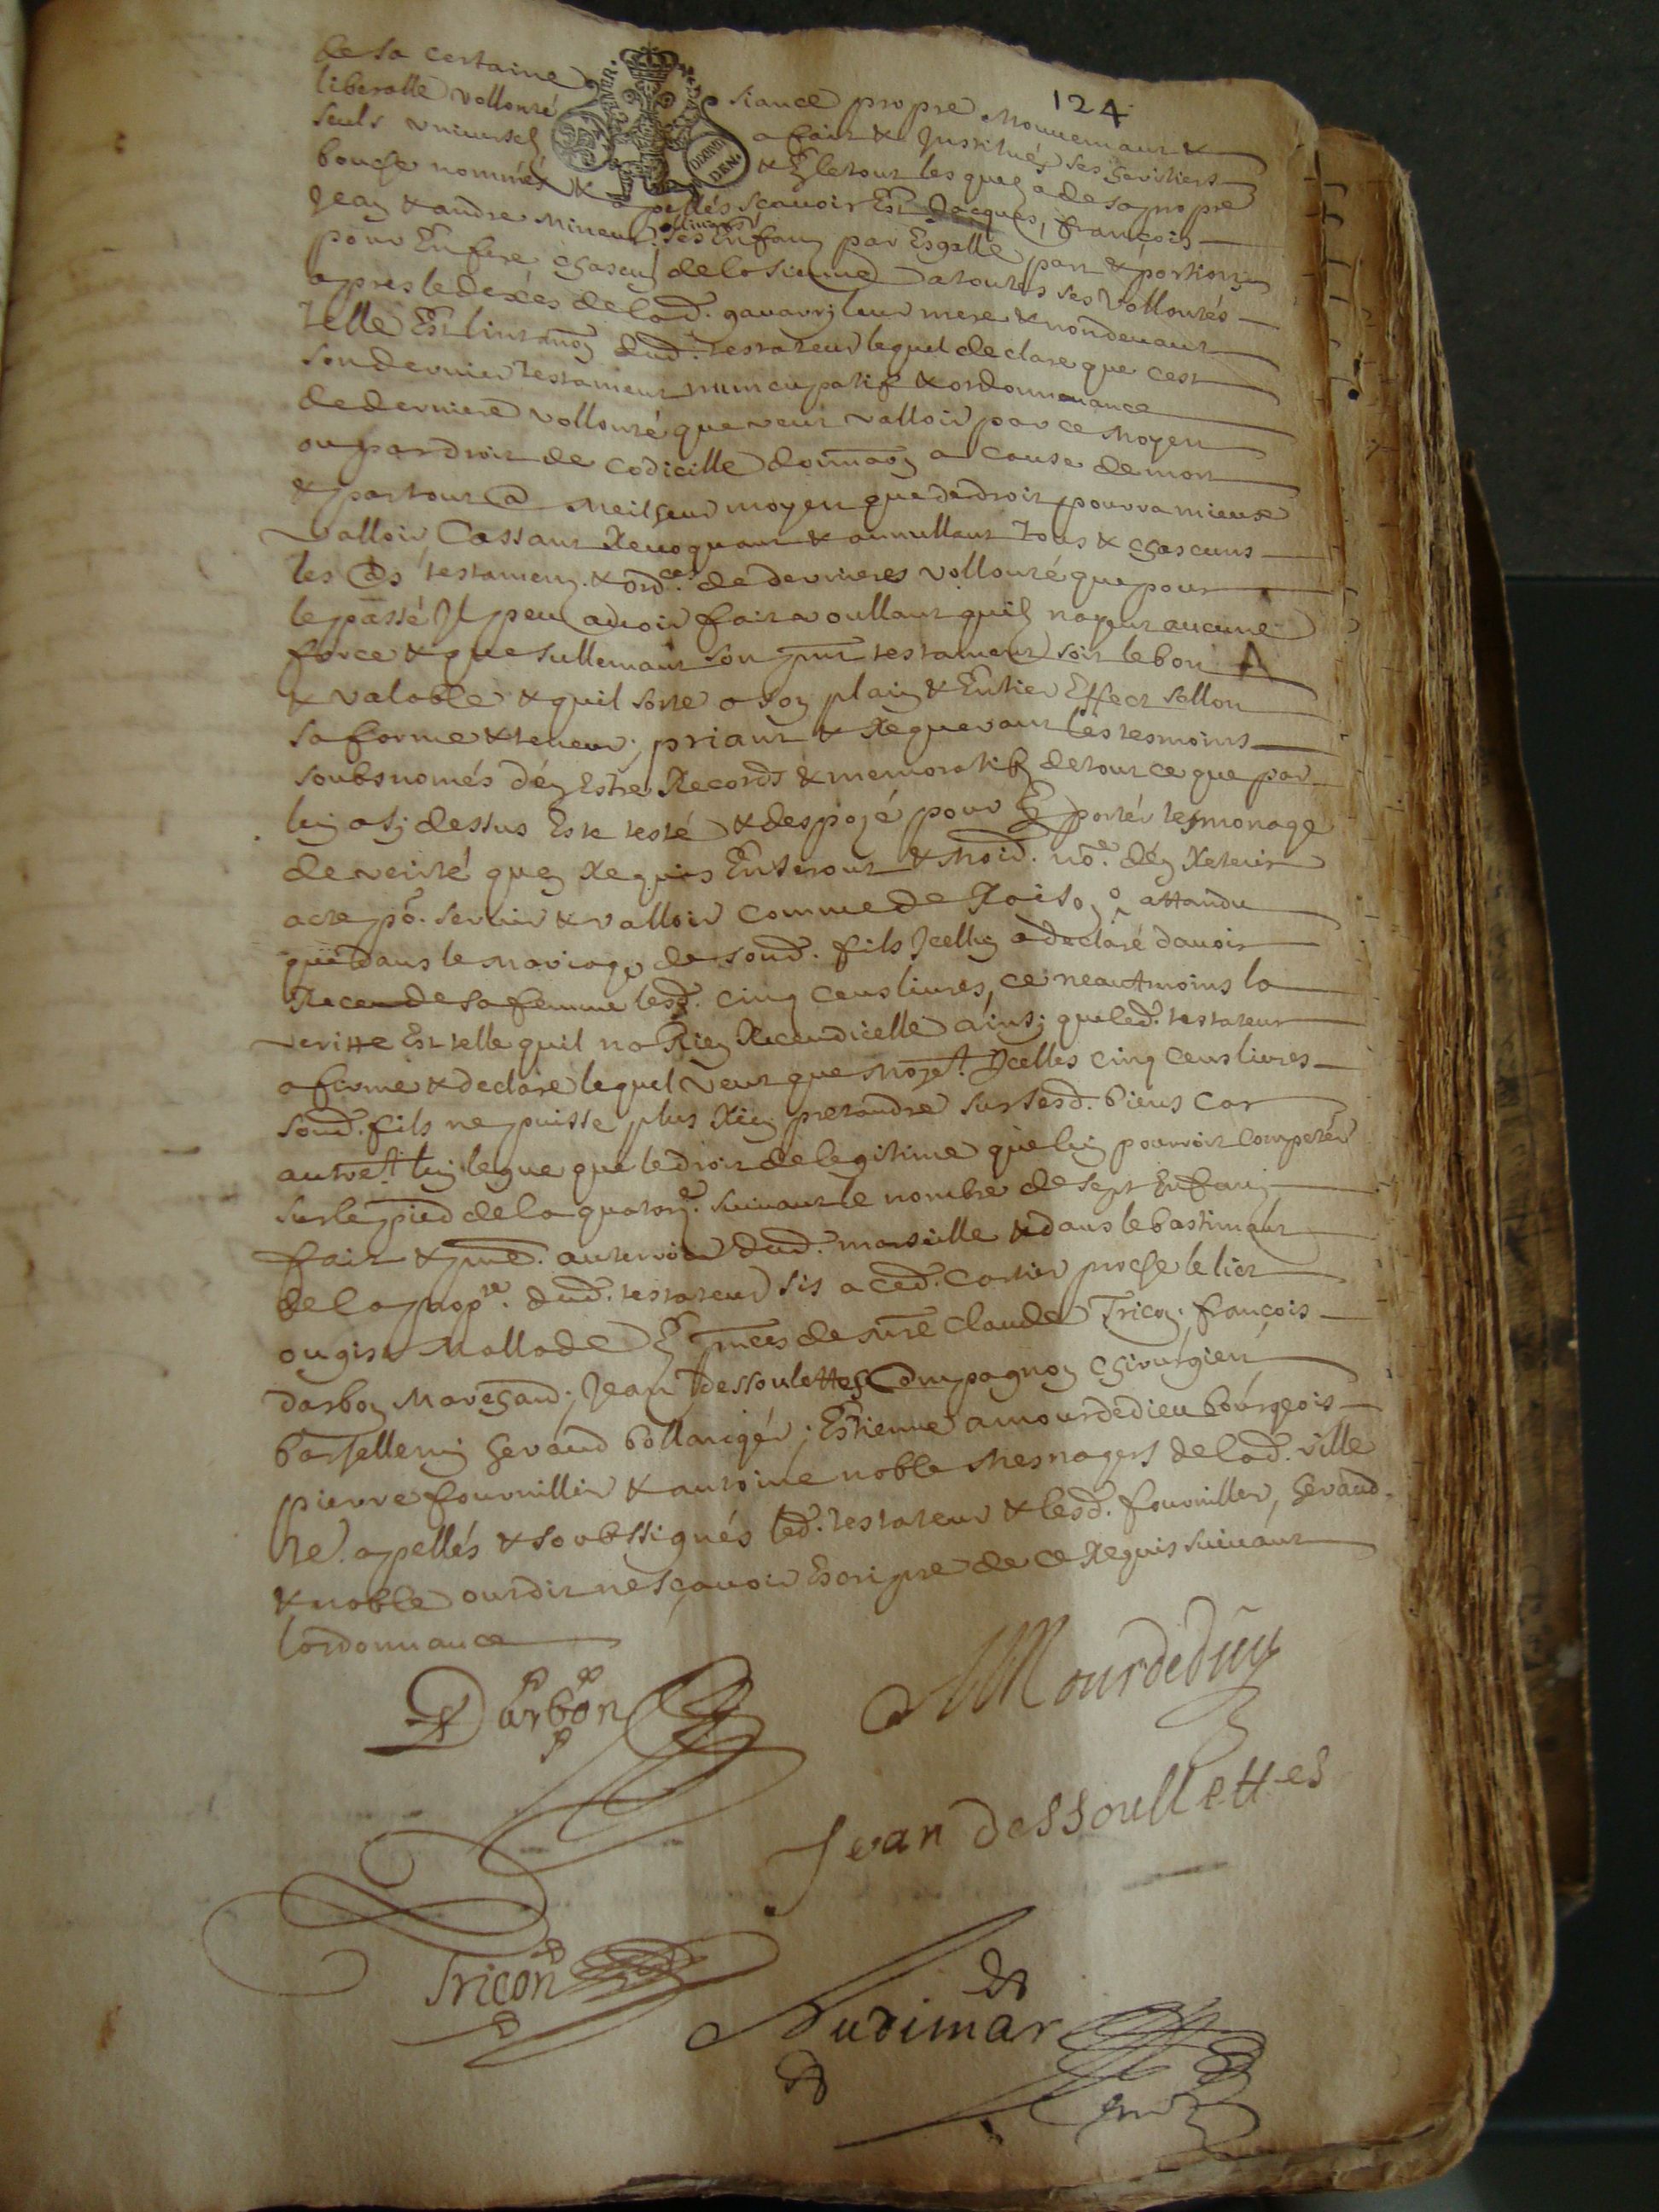 124
de sa certaine siance propre mouvemant &
liberalle vollonté a fait & Institués ses heritiers
seulz universelz & En le tout les quelz a de sa propre
bouche nommés & apellés scavoir Est Jacques, françois
Jean & andre mineur ses Enfans par Esgalle part & portion
pour En fere chascun de la sienne a toutes ses vollontés
apres le dexces de lad. gavarry leur mere & non devant
telle Est lintanon dud. testateur lequel declare que cest
son dernier testament nuncupatif & ordonnance
de derniere vollonté que veut valloir par ce moyen
ou par droit de codicille donnaon a cause de mort
& par tout @ meilheur moyen que de droit pourra mieux
valloir Cassant Revoquant & annullant tous & chascuns
les @s testamens & ordces. de dernieres vollonté que pour
le passé Il peu avoir fait voullant quilz nayent aucune
force & que sullemant son pnt testament soit le bon
& valable & quil sorte a son plain & Entier Effect sellon
sa forme & teneur, priant & Requerant les tesmoins
soubsnomés den Estre Records & memoratifz de tout ce que par
luy a sy dessus Este testé & despozé pour En porter tesmonage
de verité quen Requis Enseront & moid. noe. den Retenir
acte po. servir & valloir comme de Raison attandu
que dans le mariage de sond. fils Icelluy a declaré davoir
Receu de sa femme lesd. cinq cens livres, ce neautmoins la
veritte Est telle quil na Rien Receu dicelle ainsy que led. testateur
a firmé & declaré lequel veut que moyet. Icelles cinq cens livres
sond. fils ne puisse plus Rien pretandre sur sesd. biens car
autret. luy legue que le droit de legitime que luy pourroit competer
sur le pied de la quatorze. suivant le nombre de sept Enfans
fait & pué. au terroir dud. marseille & dans le bastimant
de la propte. dud. testateur sis a ced. cartier proche le lict
ou gist Mallade En pnces de mre Claude Tricon, françois
darbon marchand, Jean dessoulettes Compagnon chirurgien
barthellemy heraud bollangér, Estienne amourdedieu bourgeois
pierre fournillier & antoine noble mesnagers de lad. ville
te. apellés & soubssignés led. testateur & lesd. fournillier, heraud
& noble ont dit ne scavoir Escripre de ce Requis suivant
lordonnance
Darbon
AMourdedieu
Jean dessoullettes
Tricon
Audimar